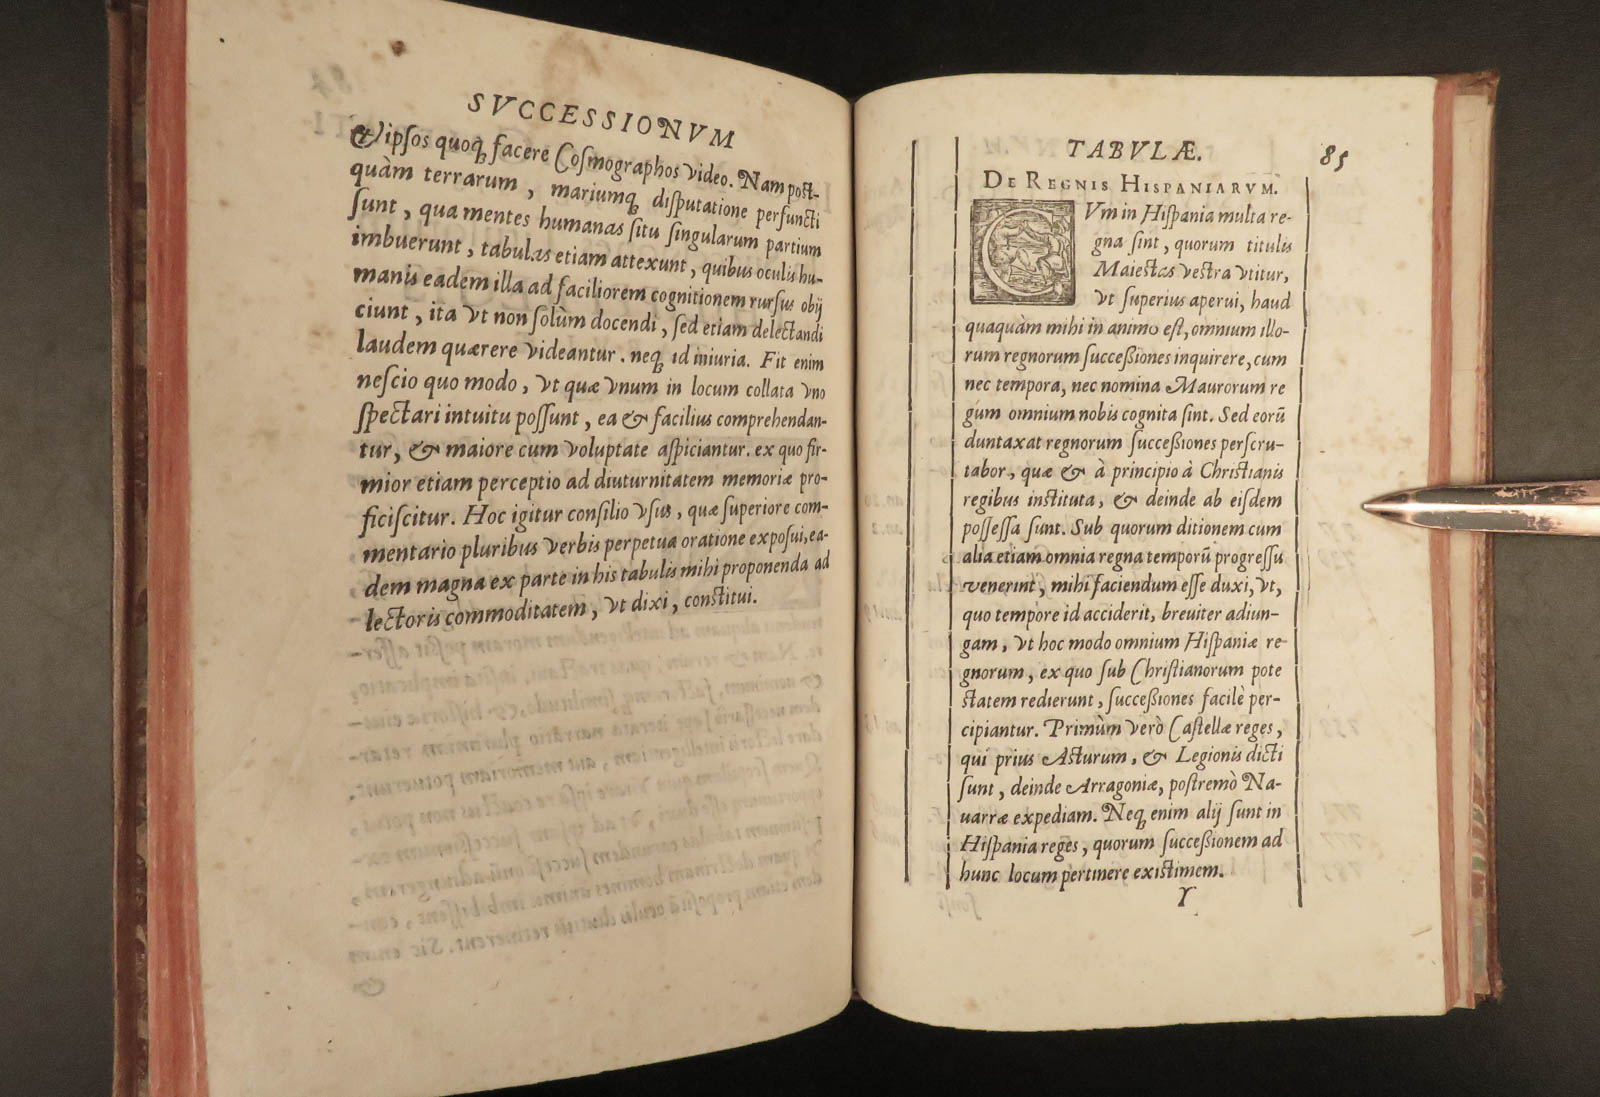 SVCCESSIONVM
& ipſos quoq; facere Coſmographos video. Nam poſt-
quàm terrarum, mariumq; diſputatione perfuncti
ſunt, qua mentes humanas ſitu ſingularum partium
imbuerunt, tabulas etiam attexunt, quibus oculis hu-
manis eadem illa ad faciliorem cognitionem rurſus obij
ciunt, ita vt non ſolùm docendi, ſed etiam delectandi
laudem quærere videantur. neq; id iniuria. Fit enim
neſcio quo modo, vt quæ vnum in locum collata vno
ſpectari intuitu poſſunt, ea & facilius comprehendan-
tur, & maiore cum voluptate aſpiciantur. ex quo fir-
mior etiam perceptio ad diuturnitatem memoriæ pro-
ficiſcitur. Hoc igitur conſilio vſus, quæ ſuperiore com-
mentario pluribus verbis perpetua oratione expoſui, ea-
dem magna ex parte in his tabulis mihi proponenda ad
lectoris commoditatem, vt dixi, conſtitui.
TABVLÆ. 85
DE REGNIS HISPANIARVM.
CVm in Hiſpania multa re-
gna ſint, quorum titulis
Maieſtas veſtra vtitur,
vt ſuperius aperui, haud
quaquàm mihi in animo eſt, omnium illo-
rum regnorum ſucceßiones inquirere, cum
nec tempora, nec nomina Maurorum re
gum omnium nobis cognita ſint. Sed eorũ
duntaxat regnorum ſucceßiones perſcru-
tabor, quæ & à principio à Chriſtianis
regibus inſtituta, & deinde ab eiſdem
poſſeſſa ſunt. Sub quorum ditionem cum
alia etiam omnia regna temporũ progreſſu
venerint, mihi faciendum eſſe duxi, vt,
quo tempore id acciderit, breuiter adiun-
gam, vt hoc modo omnium Hiſpaniæ re-
gnorum, ex quo ſub Chriſtianorum pote
ſtatem redierunt, ſucceßiones facilè per-
cipiantur. Primùm verò Caſtellæ reges,
qui prius Aſturum, & Legionis dicti
ſunt, deinde Arragoniæ, poſtremò Na-
uarræ expediam. Neq; enim alij ſunt in
Hiſpania reges, quorum ſucceſſionem ad
hunc locum pertinere exiſtimem.
Y